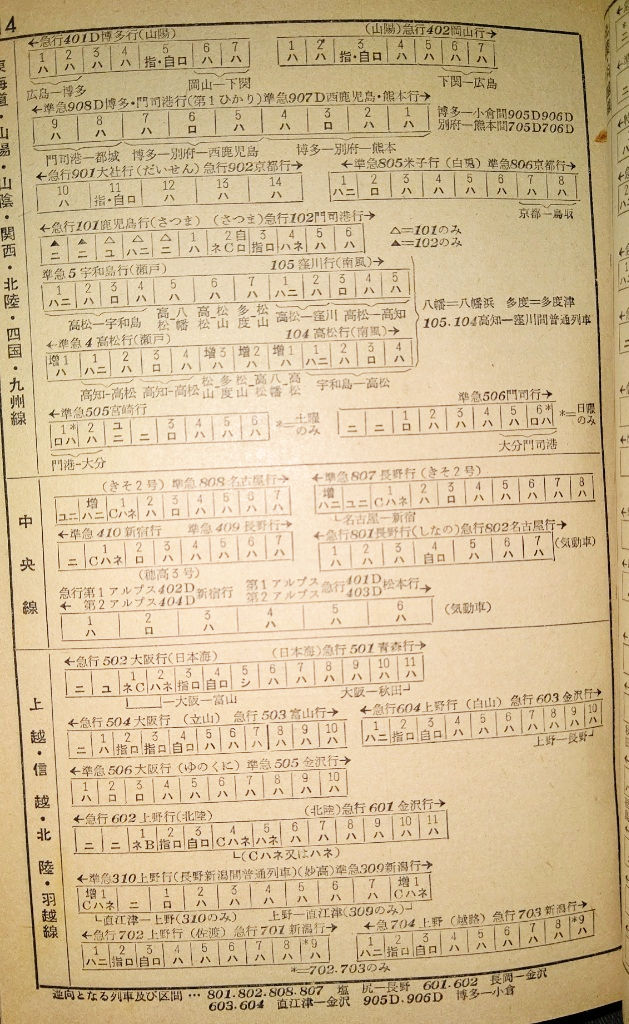 14
東海道・山陽・山陰・関西・北陸・四国・九州線
←急行401D博多行(山陽) (山陽)急行402岡山行→
1 2 3 4 5 6 7
ハ ハ ハ ハ 指・自ロ ハ ハ
1 2 3 4 5 6 7
ハ ハ 指・自ロ ハ ハ ハ ハ
広島—博多 岡山—下関 下関—広島
←準急908D博多・門司港行(第1ひかり)準急907D西鹿児島・熊本行→
9 8 7 6 5 4 3 2 1
ハ ハ ハ ロ ハ ハ ハ ロ ハ
博多—小倉間905D906D
別府—熊本間705D706D
門司港—都城 博多—別府—西鹿児島 博多—別府—熊本
←急行901大社行(だいせん)急行902京都行→
10 11 12 13 14
ハ 指・自ロ ハ ハ ハ
←準急805米子行(白兎) 準急806京都行→
1 2 3 4 5 6 7 8
ハニ ロ ハ ハ ハ ハ ハ ハ
京都—鳥取
←急行101鹿児島行(さつま) (さつま)急行102門司港行→
▲ ▲ △ △ △ 1 2自 3 4 5 6
ニ ニ ユ ハニ ニ ハ ネCロ 指ロ ハネ ハ ハ
△=101のみ
▲=102のみ
準急5宇和島行(瀬戸) 105窪川行(南風)→
1 2 3 4 5 6 7 1 2 3 4 5
ハニ ハ ロ ハ ハ ハ ハ ハニ ハ ロ ハ ハ
高松—宇和島 高松 八幡 高松 松山 多度 松山 高松—窪川 高松—高知
八幡=八幡浜 多度=多度津
105.104高知—窪川間普通列車
←準急4高松行(瀬戸) 104高松行(南風)
増1 1 2 3 4 増3 増2 増1 1 2 3 4
ハ ハニ ハ ロ ハ ハ ハ ハ ハニ ハ ロ ハ
高知-高松 高知-高松 松山 多度 松山 高松 八幡 高松 宇和島—高松
←準急505宮崎行
1* 2 ユ 3 4 5 6
ロハ ハ ニ ニ ロ ハ ハ ハ
*=土曜のみ
門港-大分
準急506門司行→
1 2 3 4 5 6*
ニ ニ ロ ハ ハ ハ ハ ロハ
*=日曜のみ
大分門司港
中央線
(きそ2号) 準急808名古屋行→
増 1 2 3 4 5 6 7
ユニ ハニ Cハネ ハ ロ ハ ハ ハ ハ
←準急807長野行(きそ2号)
増 1 2 3 4 5 6 7 8
ハニ ユニ Cハネ ハ ロ ハ ハ ハ ハ ハ
名古屋—新宿
←準急410新宿行 準急409長野行→
1 2 3 4 5 6 7
ニ Cハネ ロ ハ ハ ハ ハ ハ
(穂高3号)
←急行801長野行(しなの)急行802名古屋行→
1 2 3 4 5 6 7
ハ ハ ハ 自ロ ハ ハ ハ
(気動車)
急行第1アルプス402D新宿行 第1アルプス急行401D松本行→
← 第2アルプス404D 第2アルプス 403D
1 2 3 4 5 6
ハ ロ ハ ハ ハ ハ
(気動車)
上越・信越・北陸・羽越線
←急行502大阪行(日本海) (日本海)急行501青森行→
1 2 3 4 5 6 7 8 9 10 11
ニ ユ ネC ハネ 指ロ 自ロ シ ハ ハ ハ ハ ハ ハ
大阪—富山 大阪—秋田
←急行504大阪行 (立山) 急行503富山行→
1 2 3 4 5 6 7 8 9 10
ニ ハ 指ロ 指ロ 自ロ ハ ハ ハ ハ ハ ハ
←急行604上野行(白山) 急行603金沢行→
1 2 3 4 5 6 7 8 9 10
ハニ 指ロ 自ロ ハ ハ ハ ハ ハ ハ ハ
上野—長野
←準急506大阪行(ゆのくに) 準急505金沢行→
1 2 3 4 5 6 7 8 9 10
ハ ロ ロ ハ ハ ハ ハ ハ ハ ハ
←急行602上野行(北陸) (北陸)急行601金沢行→
1 2 3 4 5 6 7 8 9 10 11
ニ ニ ネB 指ロ 自ロ Cハネ ハネ ハ ハ ハ ハ ハ ハ
(Cハネ又はハネ)
←準急310上野行(長野新潟間普通列車)(妙高)準急309新潟行→
増1 1 2 3 4 5 6 7 増1
Cハネ ニ ロ ハ ハ ハ ハ ハ ハ Cハネ
直江津—上野(310のみ) 上野—直江津(309のみ)
←急行702上野行(佐渡)急行701新潟行→
1 2 3 4 5 6 7 8 *9
ハニ 指ロ 自ロ ハ ハ ハ ハ ハ ハ
←急704上野(越路) 急行703新潟行→
1 2 3 4 5 6 7 8 *9
ハニ 指ロ 自ロ ハ ハ ハ ハ ハ ハ
*=702.703のみ
逆向となる列車及び区間 … 801.802.808.807 塩尻—長野 601.602 長岡—金沢
603.604 直江津—金沢 905D,906D 博多—小倉